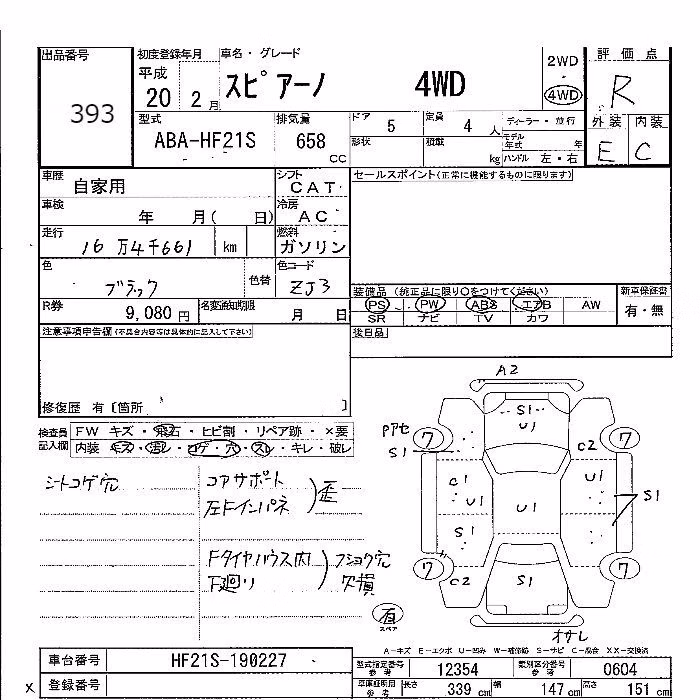 出品番号
393
初度登録年月
平成
20 2 月
車名・グレード
スピアーノ 4WD
2WD
4WD
評価点
R
外装 内装
E C
型式
ABA-HF21S
排気量
658
CC
ドア
5
定員
4 人
ディーラー・並行
形状
積載
kg
モデル年式 年
ハンドル 左・右
車歴
自家用
シフト
CAT
セールスポイント(正常に機能するものに限ります)
車検
年 月( 日)
冷房
AC
走行
16万4千661 km
燃料
ガソリン
色
ブラック
色替
色コード
ZJ3
R券
9,080 円
名変通知期限
月 日
装備品 (純正品に限り○をつけてください)
PS PW ABS エアB AW
SR ナビ TV カワ
新車保証書
有・無
注意事項申告欄(不具合内容等は具体的に記入して下さい)
後日品
修復歴 有〔箇所 〕
検査員記入欄
FW キズ・飛石・ヒビ割・リペア跡・×要
内装 キズ・汚レ・コゲ・穴・スレ・キレ・破レ
シートコゲ穴
コアサポート
左Fインパネ
歪
Fタイヤハウス内
F廻り
フショク穴
欠損
有
スペア
A2
S1
U1
Pアセ
S1
7
7
C2
C1
U1
U1
U1
S1
S1
7
7
C2
S1
オサレ
A-キズ E-エクボ U-凹み W-補修跡 S-サビ C-腐食 XX-交換済
車台番号
HF21S-190227
登録番号
型式指定番号 参考
12354
類別区分番号 参考
0604
車庫証明用 参考
長さ 339 cm
幅 147 cm
高さ 151 cm
x